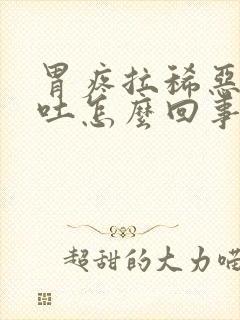 胃疼拉稀惡
吐怎麼回事
超甜的大力喵